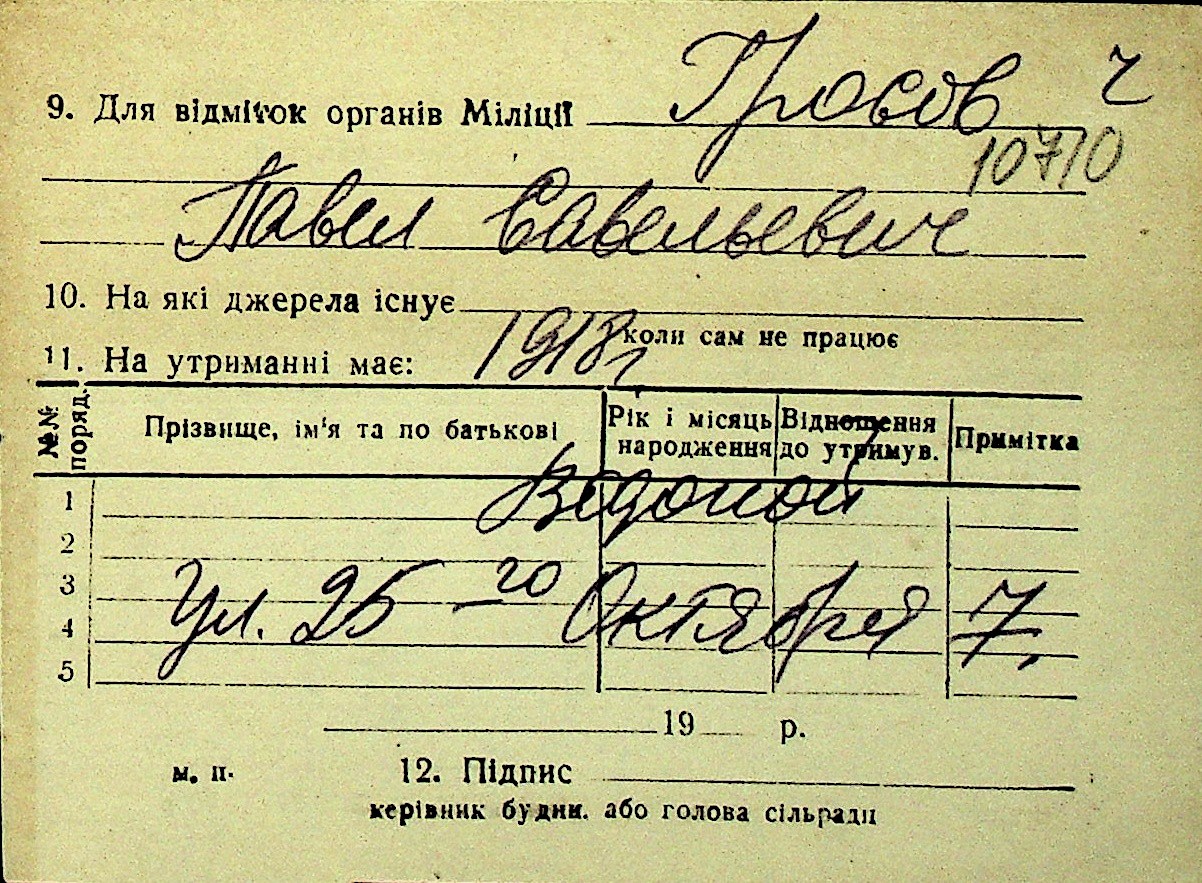 9. Для відміток органів Міліції Гросов ч
10710
Павел Савельевич
10. На які джерела існує
коли сам не працює
11. На утриманні має: 1918 г.
№№ поряд. Прізвище, ім'я та по батькові Рік і місяць народження Відношення до утримув. Примітка
1
2
3 Ул. 25-го Октября 7.
4
5
19 р.
м. п. 12. Підпис
керівник будин. або голова сільради